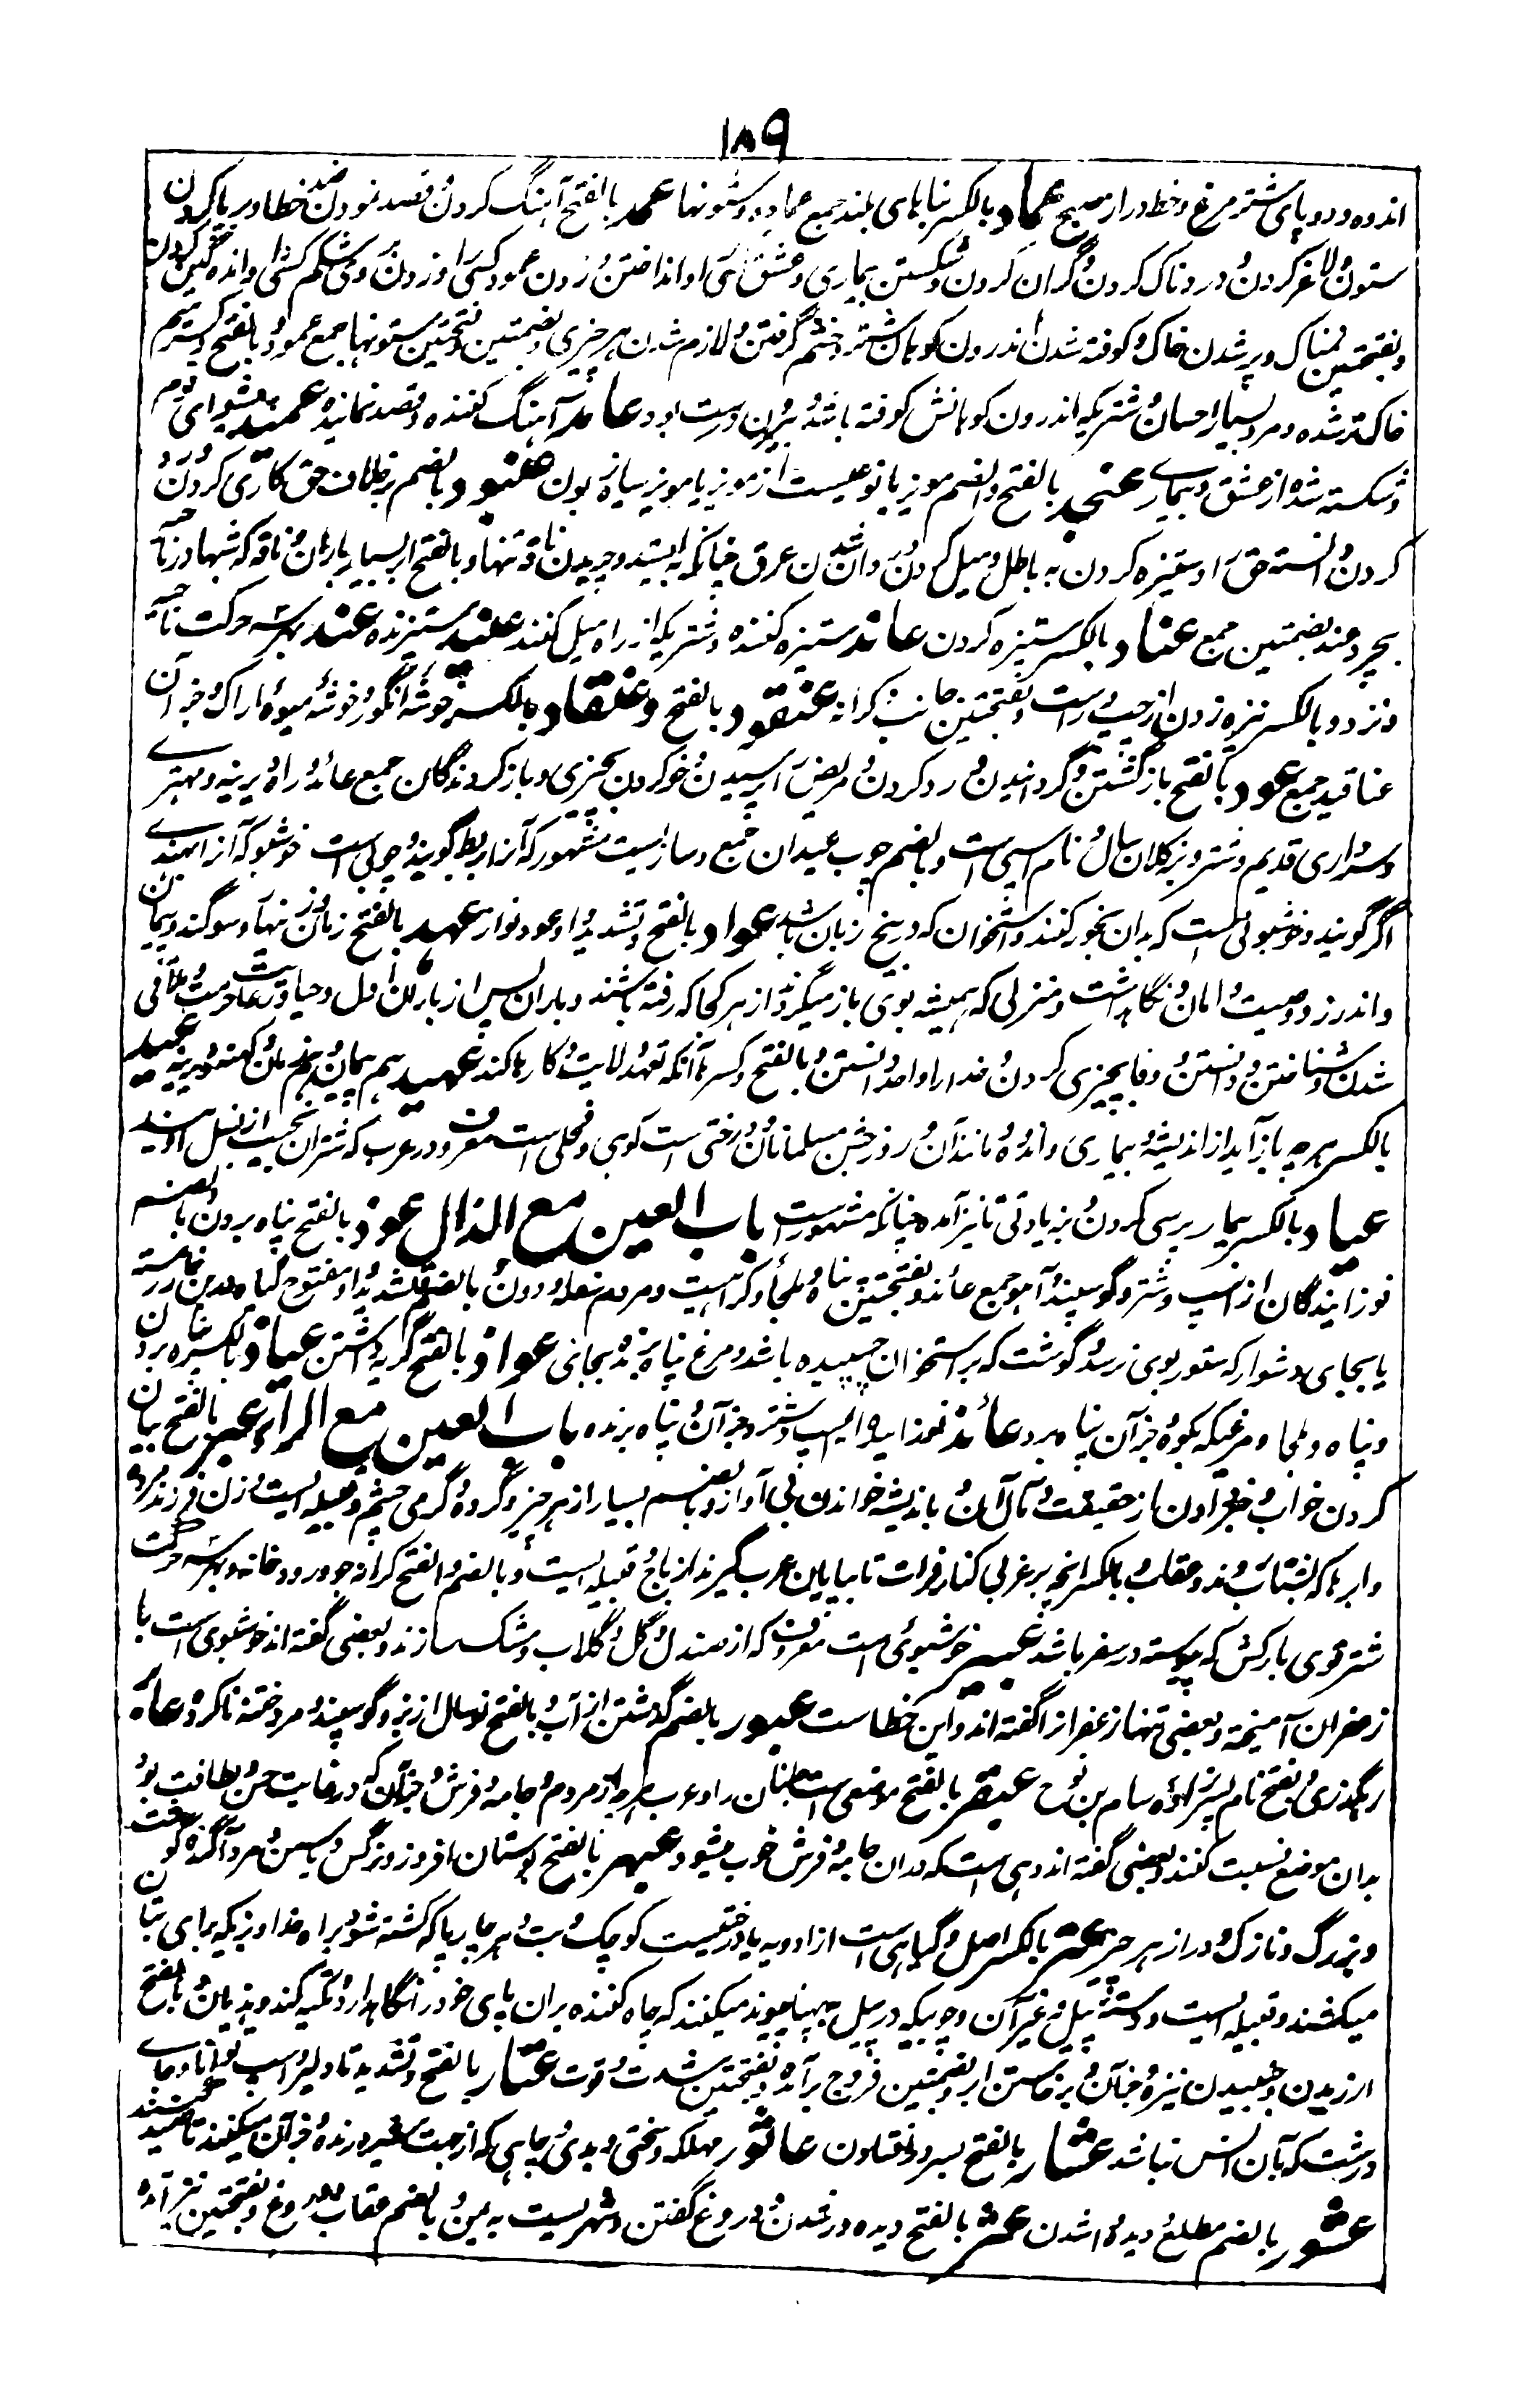 ١٨٩
اندوه و دو پای شتر مرغ و خط دراز صبح عماد بالکسر بناهای بلند جمع عماده و ستونها عمد بالفتح آهنگ کردن و قصد نمودن ضد خطا و برپا کردن
ستون و لاغر کردن و دردناک کردن و گران کردن و شکستن بیماری و عشق کسی را و انداختن و زدن عمود کسی را و زدن بر شکم کسی و اندوهگین کردن
و بفتحتین نمناک و پر شدن خاک و کوفته شدن اندرون کوهان شتر و خشم گرفتن و لازم شدن هر چیزی و بضمتین و فتحتین ستونها جمع عمود و بالفتح و کسر میم
خاک تر شده و مرد بسیار احسان و شتریکه اندرون کوهانش کوفته باشد و بیرون درست بود عامد آهنگ کننده و قصد نماینده عمید پیشوای قوم
و شکسته شده از عشق و بیماری عنجد بالفتح و الضم مویز یا نوعیست از مویز یا مویز سیاه زبون عنود بالضم بر خلاف حق کاری کردن و رد
کردن دانسته حق را و ستیزه کردن به باطل و میل کردن و روان شدن عرق چنانکه نه ایستد و چریدن ناقه تنها و بالفتح ابر بسیار باران و ناقه که تنها در ناحیه
بچرد عند بضمتین جمع عناد بالکسر ستیزه کردن عاند ستیزه کننده و شتریکه از راه میل کند عنید ستیزنده عند بهر سه حرکت ناحیه
و نزد و بالکسر نیزه زدن از چپ و راست و بفتحتین جانب و کرانه عنقود بالفتح و عنقاد بالکسر خوشه انگور و خوشه میوه اراک و جز آن
عناقید جمع عود بالفتح بازگشتن و گردانیدن و رد کردن و مریض را پرسیدن و خو کردن بچیزی و بازگردندگان جمع عائد و راه دیرینه و مهتری
و سرداری قدیم و شتر و بز کلان سال و نام اسپی است و بالضم چوب عیدان جمع و سازیست مشهور که آنرا بربط گویند و چوبی است خوشبو که آنرا بهندی
اگر گویند و خوشبوئی است که بدان بخور کنند و استخوان که در بیخ زبان باشد عواد بالفتح و تشدید واو عود نواز عهد بالفتح زمان و روز و سوگند و پیمان
و اندرز و وصیت و امان و نگاهداشت و منزلی که همیشه بوی بازمیگردند از هر کجا که رفته باشند و باران پس از باران اول و حیا و رعایت حرمت و ملاقی
شدن و شناختن و دانستن و وفا بچیزی کردن و خدا را واحد دانستن و بالفتح و کسر ها آنکه تعهد ولایت و کارها کند عهید هم پیمان و هم زمان و کهنه و دیرینه عید
بالکسر هر چه بازآید از اندیشه و بیماری و اندوه و مانند آن و روز جشن مسلمانان و درختی است کوهی و فحلی است معروف در عرب که شتران نجیب از نسل او پیند
عیاد بالکسر بیمار پرسی کردن و بزیادتی تا نیز آمده چنانکه مشهور است باب العین مع الذال عوذ بالفتح پناه بردن و بالضم
نوزایندگان از اسپ و شتر و گوسپند و آهو جمع عائذ و بفتحتین پناه و ملجأ و کراهیت و مردم سفله و دون و بالضم و تشدید واو مفتوح گیاه در بن خار رسته
یا بجای دشوار که ستور بوی نرسد و گوشت که بر استخوان چسپیده باشد و مرغ پناه برنده بجائی عواذ بالفتح کریه داشتن عیاذ بالکسر پناه بردن
و پناه و ملجا و مرغیکه بکوه و جز آن پناه برد عائذ نوزاینده اسپ و شتر و جز آن و پناه برنده باب العین مع الراء عبر بالفتح بیان
کردن خواب و خبر دادن از حقیقت و مآل آن و باندیشه خواندن بی آواز و بالضم بسیار از هر چیز و گروه و گرمی چشم و قبیله ایست و زن فرزند مرده
و ابرها که بشتاب روند و عقاب و بالکسر آنچه بر غربی کنار فرات تا بیابان عرب گیرند از باج و قبیله ایست و بالضم و الفتح کرانه جو و رودخانه و بهر سه حرکت
شتر قوی بارکش که پیوسته در سفر باشد عبیر خوشبوئی است معروف که از صندل و گل و گلاب و مشک سازند و بعضی گفته اند خوشبوی است با
زعفران آمیخته و بعضی تنها زعفران را گفته اند و این خطاست عبور بالضم گذشتن از آب و بالفتح نوسال از بز و گوسپند و مرد ختنه ناکرده عابر
رهگذری و بفتح نام پسرزاده سام بن نوح عبقر بالفتح موضعی است و عرب هر چه از مردم و جامه و فرش و جز آن که در غایت حسن و لطافت بود
بدان موضع نسبت کنند و بعضی گفته اند دهی است که در آن جامه و فرش خوب میشود عبهر بالفتح بوستان افروز و نرگس و یاسمن و مرد آگنده گوشت
و بزرگ و نازک و دراز هر چیز عتر بالکسر اصل و گیاهی است از ادویه یا درختیست کوچک و بت و هر چارپا که کشته شود براه خدا و بزیکه برای بتان
میکشند و قبیله ایست و دسته بیل و غیر آن و چوبیکه در بیل به پهنا پیوند میکنند که چاه کننده بران پای خود را نگاهدارد و تکیه کند و هذیان و بالفتح
لرزیدن و جنبیدن نیزه و جز آن و برخاستن ایر و بضمتین فروج برآمده و بفتحتین شدت و قوت عتار بالفتح و تشدید تا دلیر و اسپ توانا و جای
درشت که بآن انس نباشد عثار بالفتح بسر در افتادن عاثور مهلکه و سختی و بدی و چاهی که از جهت شیر درنده و جز آن میکنند تا صید کنند
عثور بالضم مطلع و دیده ور شدن عثر بالفتح دیده ور شدن و دروغ گفتن و شهریست به یمن و بالضم عقاب و دروغ و بفتحتین نیز آمده